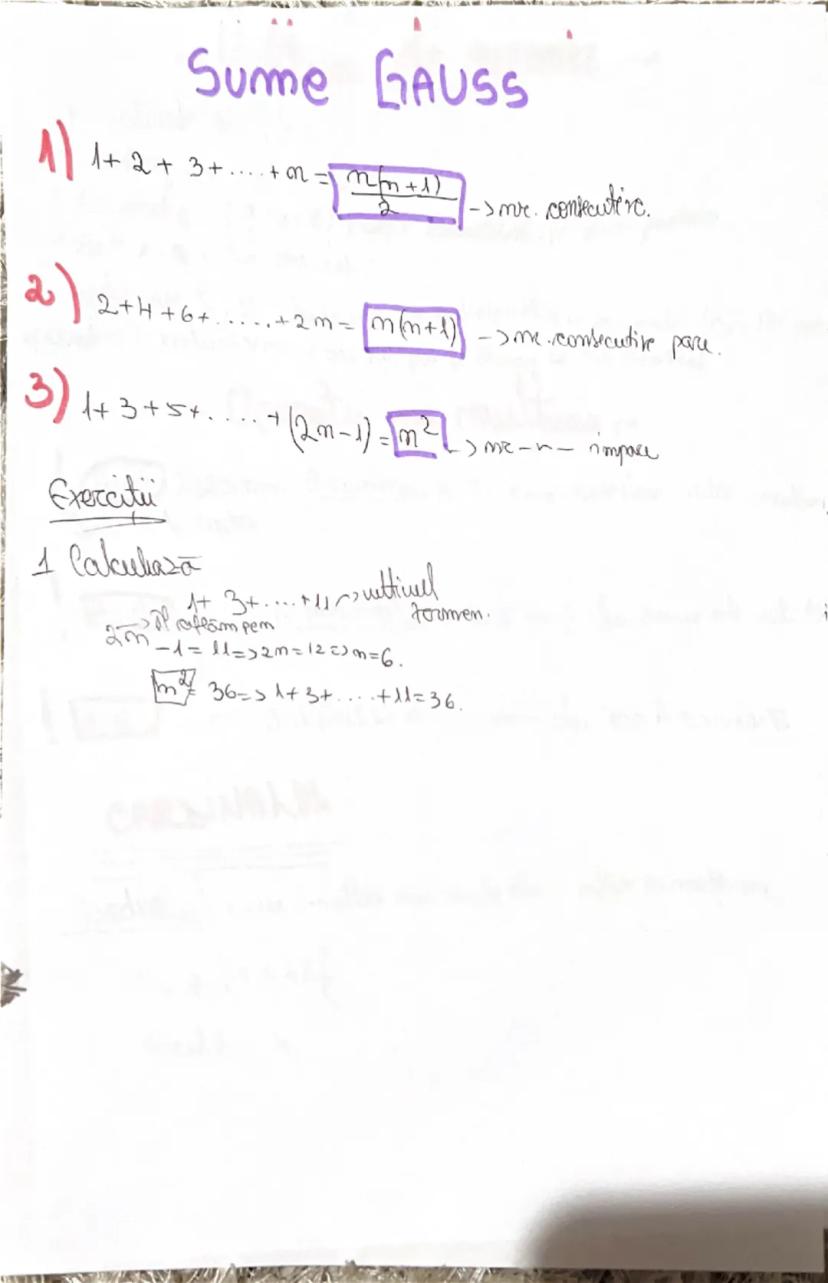 Sume GAUSS
1) 1+2+3+....+n = n(n+1)/2 -> nr. consecutive.
2) 2+4+6+......+2n = n(n+1) -> nr. consecutive pare.
3) 1+3+5+.....+(2n-1) = n² -> nr -n- impare
Exerciții
1 Calculează
1+3+....+11 -> ultimul
termen.
2n-1=11=>2n=12=>n=6.
n²=36=>1+3+....+11=36.